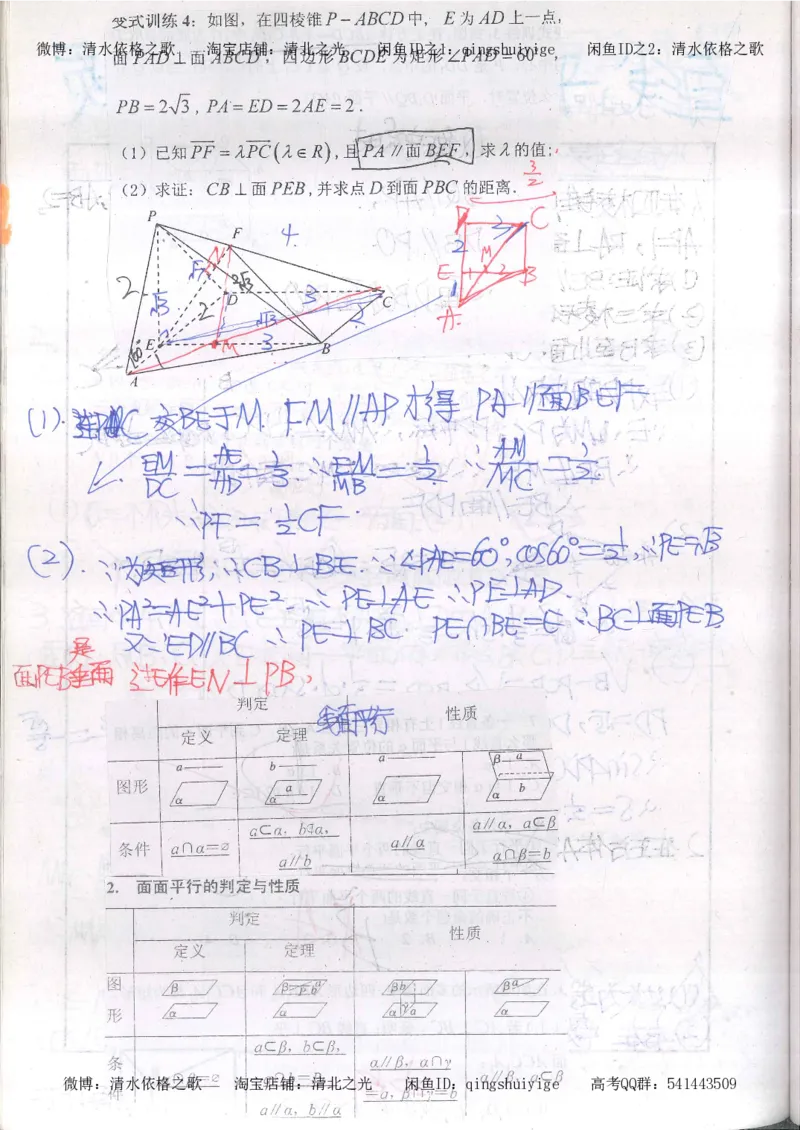 变式训练4：如图，在四棱锥P-ABCD中，E为AD上一点，
微博：清水依格之歌 淘宝店铺：清北之光 闲鱼ID之1：qingshuiyige 闲鱼ID之2：清水依格之歌
面PAD⊥面ABCD，四边形BCDE为矩形∠PAD=60°，
PB=2√3，PA=ED=2AE=2.
(1) 已知PF=λPC(λ∈R)，且PA∥面BEF，求λ的值；
(2) 求证：CB⊥面PEB，并求点D到面PBC的距离.
3/2
P F 4 D C
2 3 C
2 √3 2 D 3 2
E M 2 B
E √3 3 M B
60° 1 A
A
(1). 连AC 交BE于M. FM∥AP 才得 PA∥面BEF
EM/DC = AE/AD = 1/3 ∴ EM/MB = 1/2 ∴ AM/MC = 1/2
∴PF = 1/2 CF
(2). ∵为矩形，∴CB⊥BE. ∵∠PAE=60°，cos60°=1/2，∴PE=√3
∴PA²=AE²+PE² ∴ PE⊥AE ∴PE⊥AD.
又∵ED∥BC ∴ PE⊥BC. PE∩BE=E ∴BC⊥面PEB
是
面PEB垂面 过E作EN⊥PB，
判定 性质
线面平行
定义 定理
图形 a α b a α a α β a b α
条件 a∩α=∅ a⊂α，b⊄α，a∥b a∥α a∥α，a⊂β α∩β=b
2. 面面平行的判定与性质
判定 性质
定义 定理
图形 β α β P b a α β b α a β a α
条件 a⊂β，b⊂β， α∥β，α∩γ=a，β∩γ=b α∥β，a⊂β
微博：清水依格之歌 淘宝店铺：清北之光 闲鱼ID：qingshuiyige 高考QQ群：541443509
a∥α，b∥α